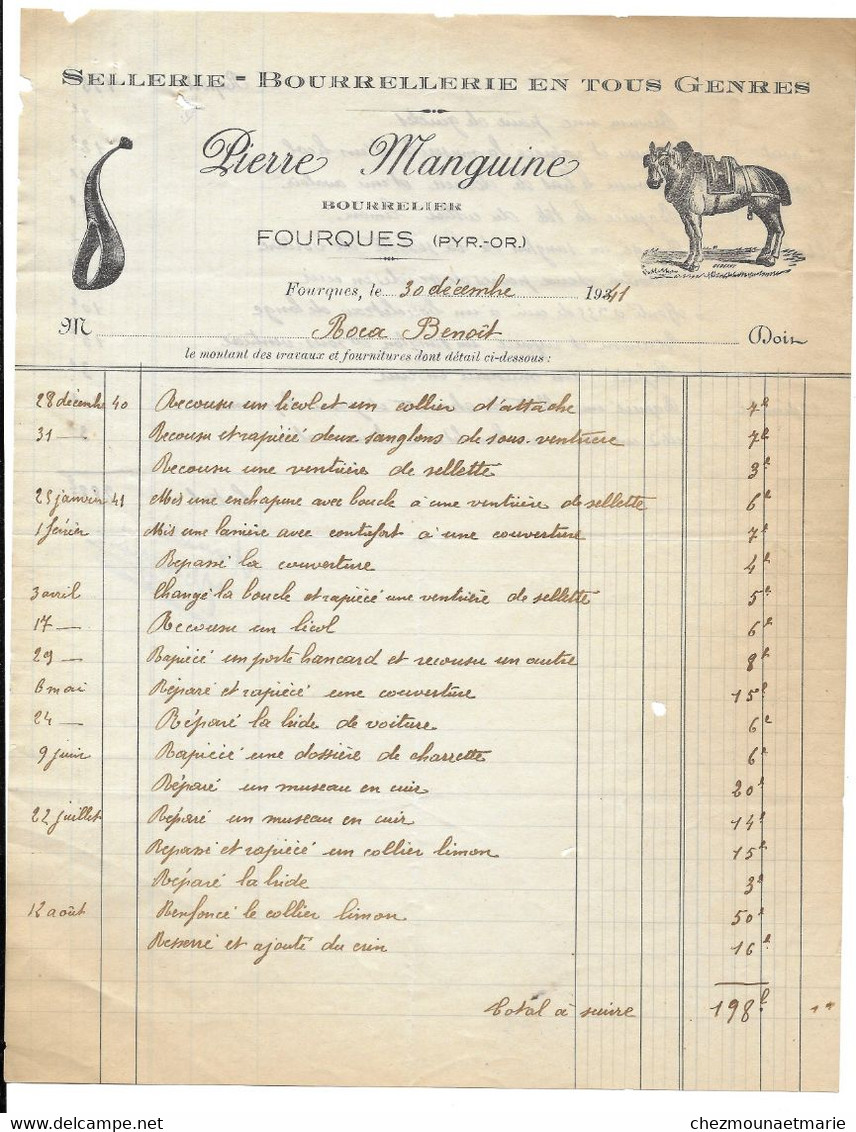 SELLERIE - BOURRELLERIE EN TOUS GENRES
Pierre Manguine
BOURRELIER
FOURQUES (PYR.-OR.)
Fourques, le 30 décembre 1941
M Roca Benoît Doit
le montant des travaux et fournitures dont détail ci-dessous :
28 décembre 40 Recousu un licol et un collier d'attache 4f
31 — Recousu et rapiécé deux sanglons de sous-ventrière 7f
Recousu une ventrière de sellette 3f
25 janvier 41 Mis une enchapure avec boucle à une ventrière de sellette 6f
1 février Mis une lanière avec contrefort à une couverture 7f
Repassé la couverture 4f
3 avril Changé la boucle et rapiécé une ventrière de sellette 5f
17 — Recousu un licol 6f
29 — Rapiécé un porte brancard et recousu un autre 8f
6 mai Réparé et rapiécé une couverture 15f
24 — Réparé la bride de voiture 6f
9 juin Rapiécé une dossière de charrette 6f
Réparé un museau en cuir 20f
22 juillet Réparé un museau en cuir 14f
Repassé et rapiécé un collier limon 15f
Réparé la bride 3f
12 août Renfoncé le collier limon 50f
Resserré et ajouté du crin 16f
Total à suivre 198f
chezmounaetmarie